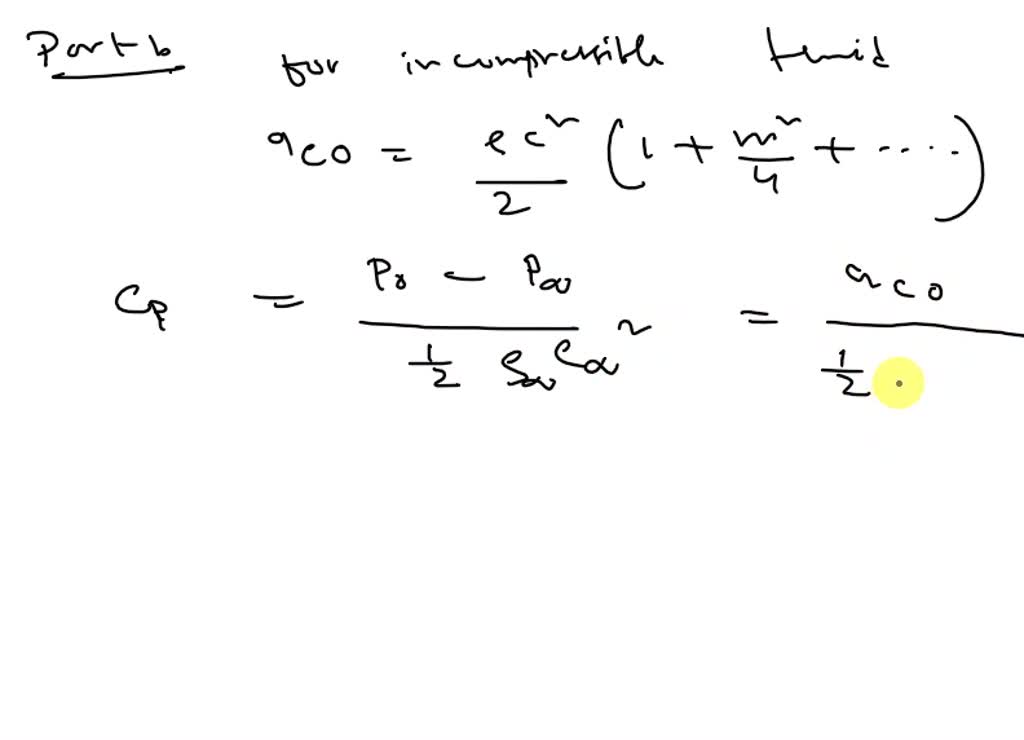 Part b for incompressible fluid
q_{co} = \frac{ρc^2}{2} (1 + \frac{m^2}{4} + ....)
C_P = \frac{P_0 - P_∞}{\frac{1}{2} ρ_∞ C_∞^2} = \frac{q_{co}}{\frac{1}{2}}